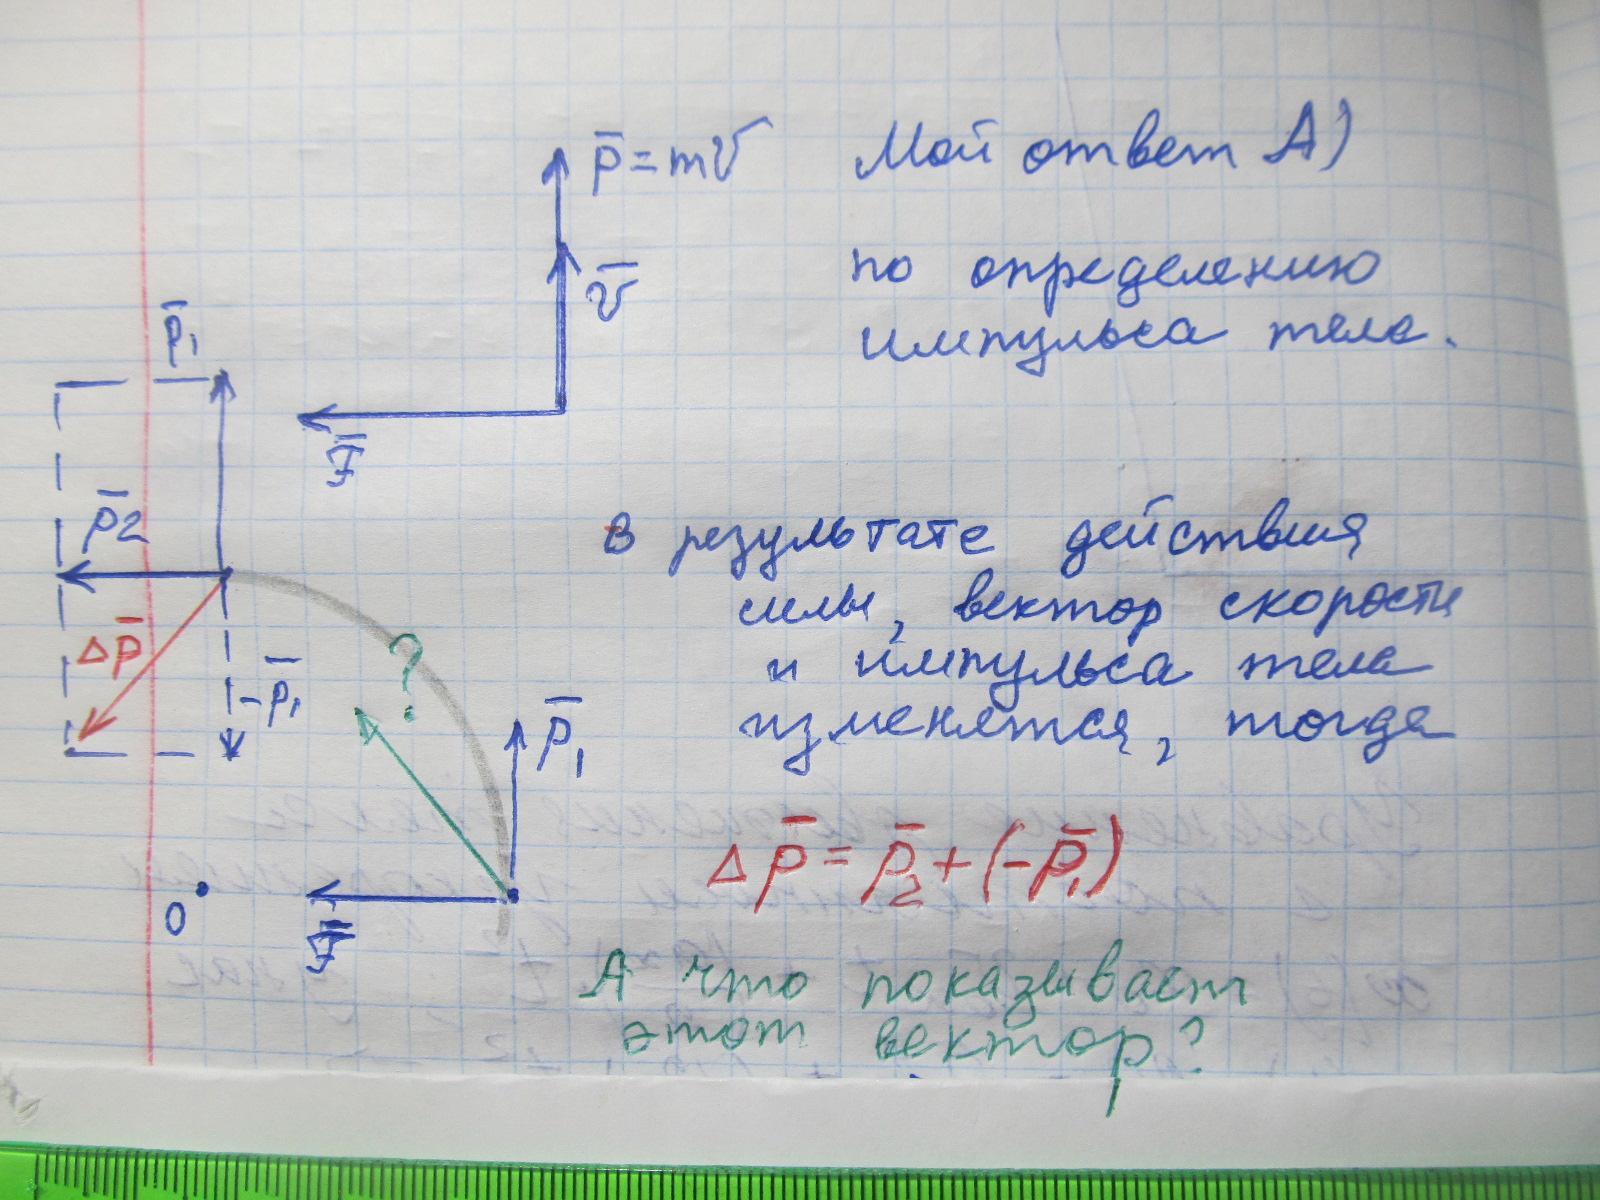 p̄ = mv̄
Мой ответ А)
v̄
по определению
импульса тела.
p̄1
F̄
p̄2
В результате действия
силы, вектор скорости
и импульса тела
изменятся, тогда
Δp̄
-p̄1
?
p̄1
Δp̄ = p̄2 + (-p̄1)
0
F̄
А что показывает
этот вектор?